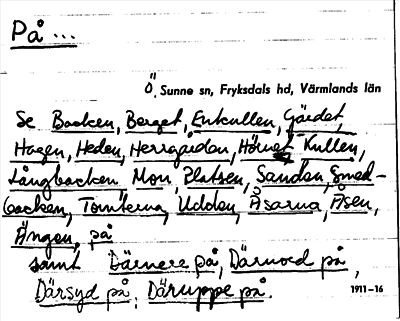 På ...
Ö. Sunne sn, Fryksdals hd, Värmlands län
Se Backen, Berget, Enkullen, Gärdet,
Hagen, Heden, Herrgårdon, Hörnet, Kullen,
Långbacken, Mon, Platsen, Sanden, Smed-
backen, Tomterna, Udden, Åsarna, Åsen,
Ängen, på
samt Därnere på, Därnord på,
Därsyd på, Däruppe på.
1911-16